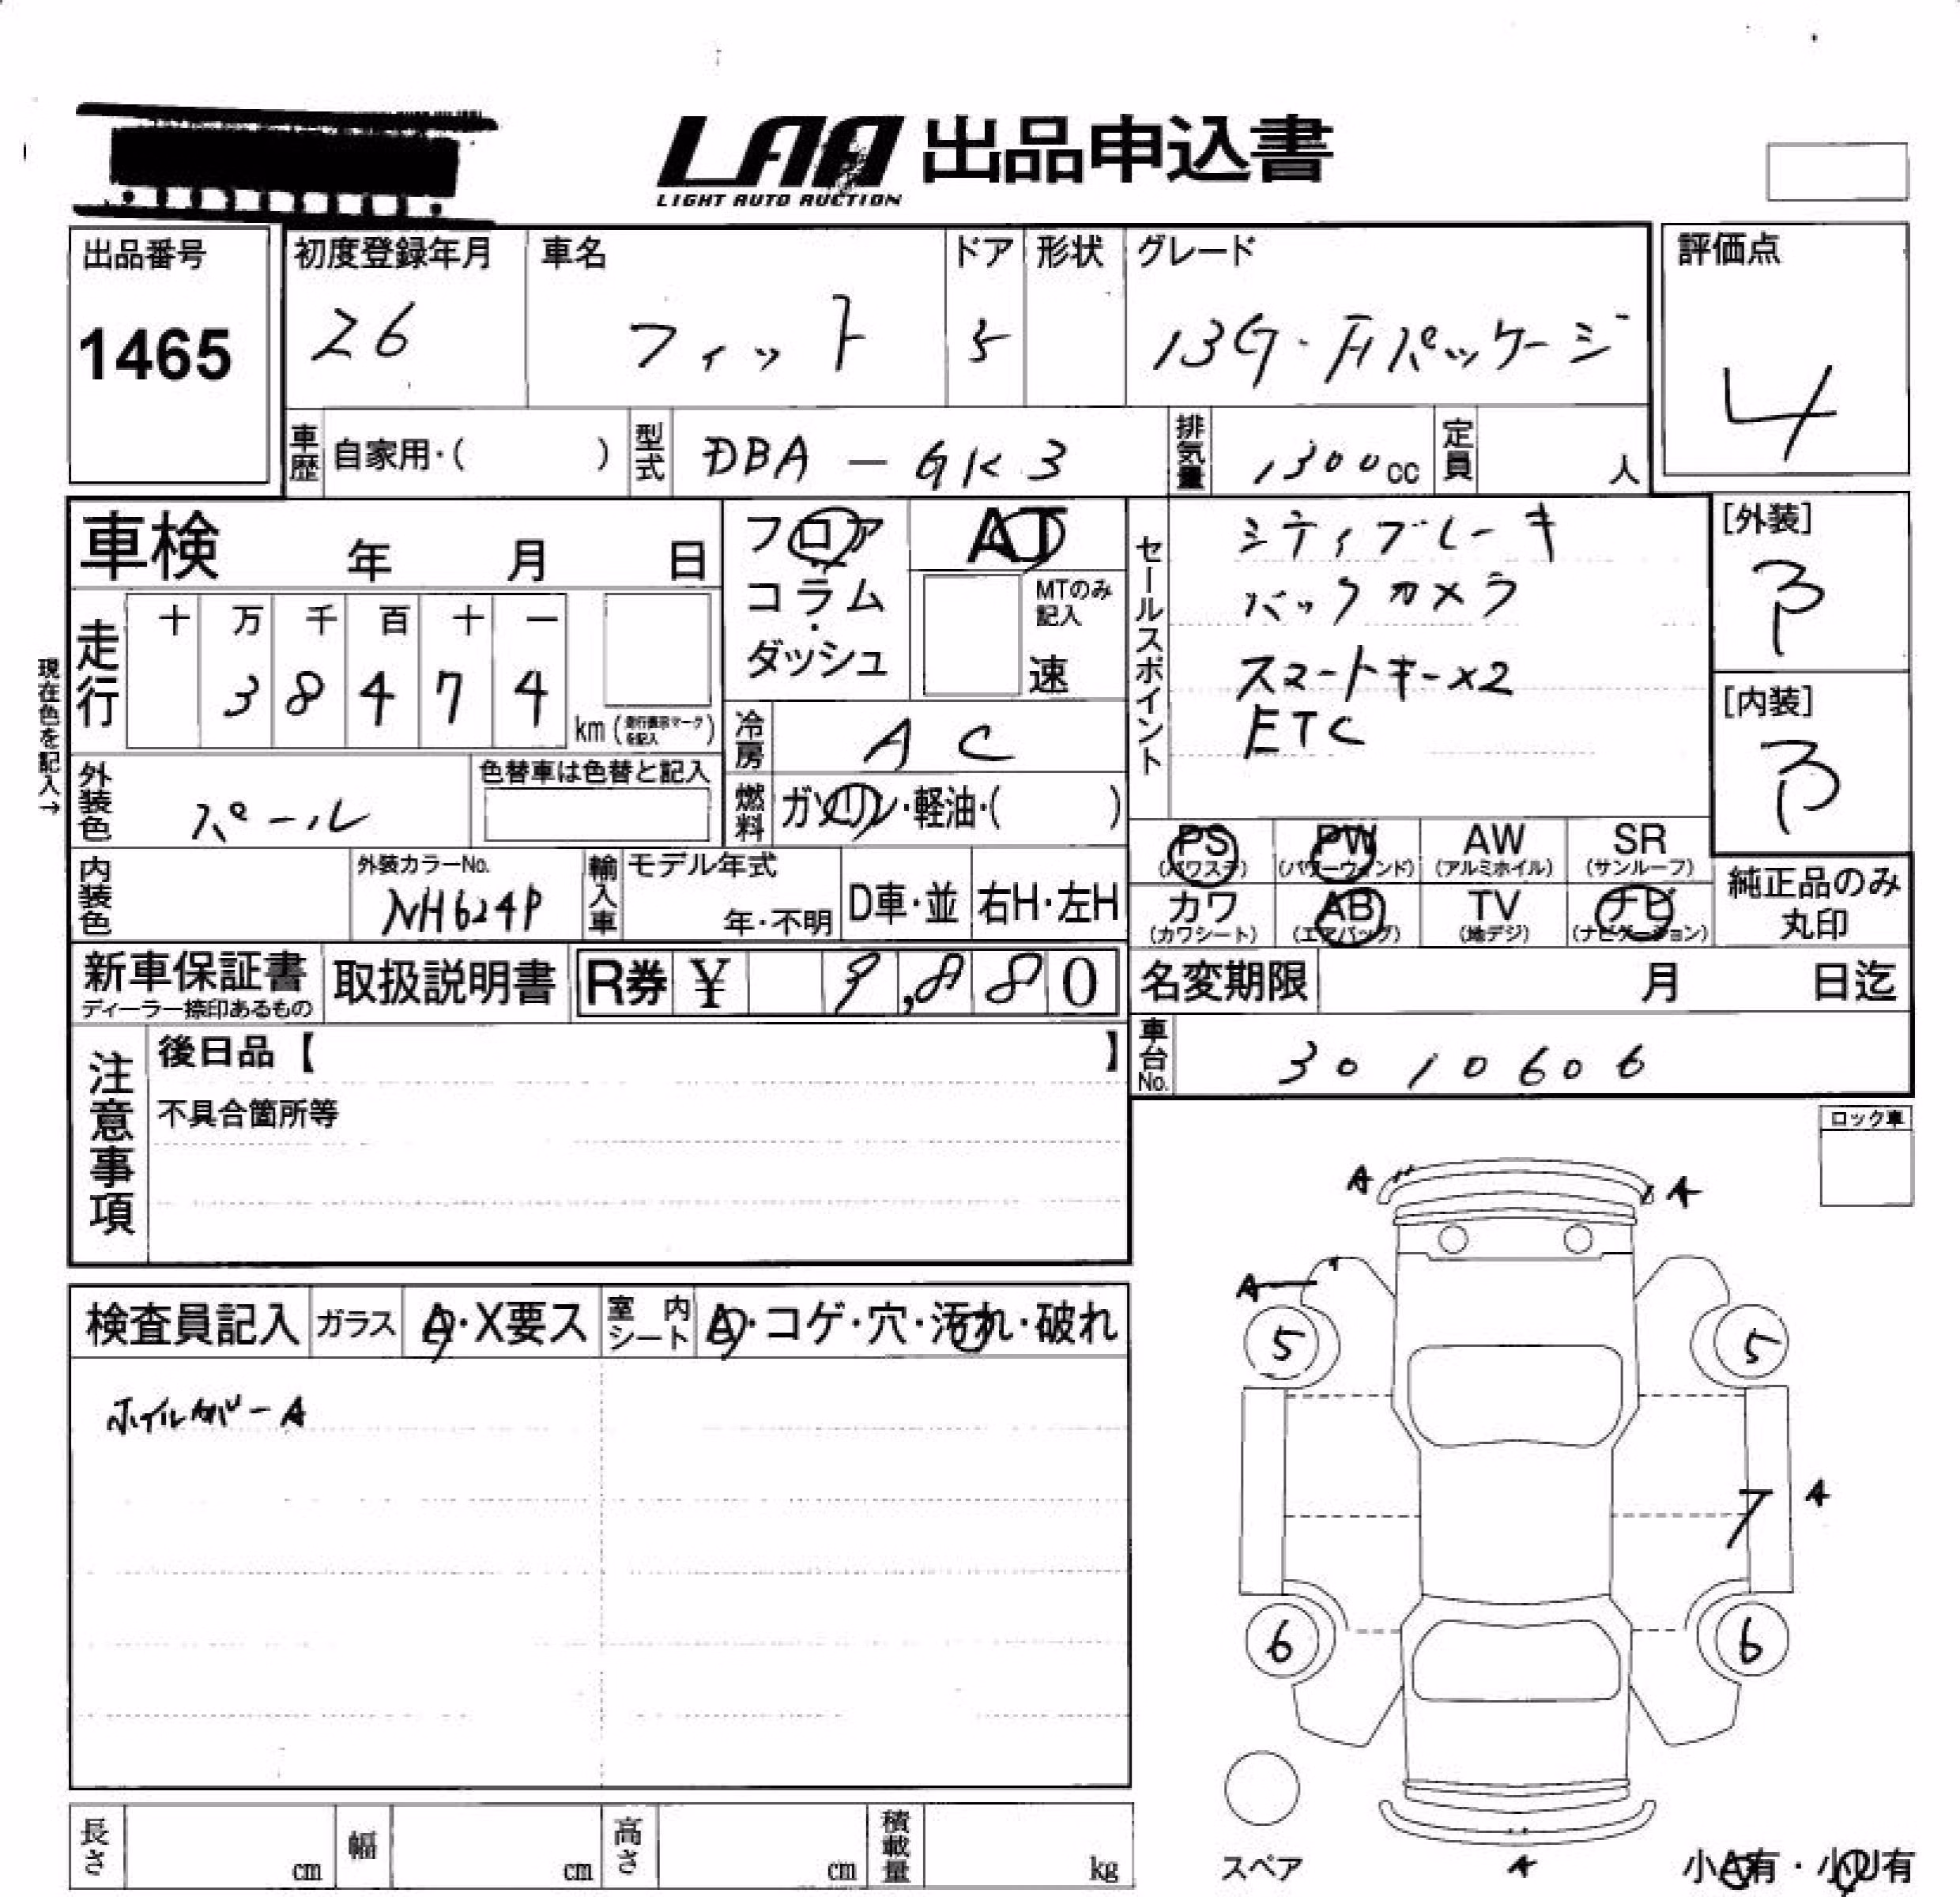 LAA 出品申込書
LIGHT AUTO AUCTION
出品番号 初度登録年月 車名 ドア 形状 グレード 評価点
1465 26 フィット 5 13G・Fパッケージ 4
車歴 自家用・( ) 型式 DBA-GK3 排気量 1300cc 定員 人
車検 年 月 日 フロア AT セールスポイント シティブレーキ [外装]
コラム・ MTのみ記入 バックカメラ B
走行 十 万 千 百 十 一 ダッシュ 速 スマートキーx2 [内装]
38474 km(走行表示マークを記入) 冷房 AC ETC B
現在色を記入→
外装色 パール 色替車は色替と記入 燃料 ガソリン・軽油・( )
PS PW AW SR
(パワステ) (パワーウィンド) (アルミホイル) (サンルーフ)
内装色 外装カラーNo. NH624P 輸入車 モデル年式 年・不明 D車・並 右H・左H
カワ AB TV ナビ 純正品のみ
(カワシート) (エアバッグ) (地デジ) (ナビゲーション) 丸印
新車保証書 取扱説明書 R券 ¥ 9,880 名変期限 月 日迄
ディーラー捺印あるもの
注意事項 後日品【 】 車台No. 3010606
不具合箇所等
ロック車
A A
A
検査員記入 ガラス A・X要ス 室内シート A・コゲ・穴・汚れ・破れ
5 5
ホイルカバーA
A
6 6
長さ cm 幅 cm 高さ cm 積載量 kg
スペア A 小A有・小U有